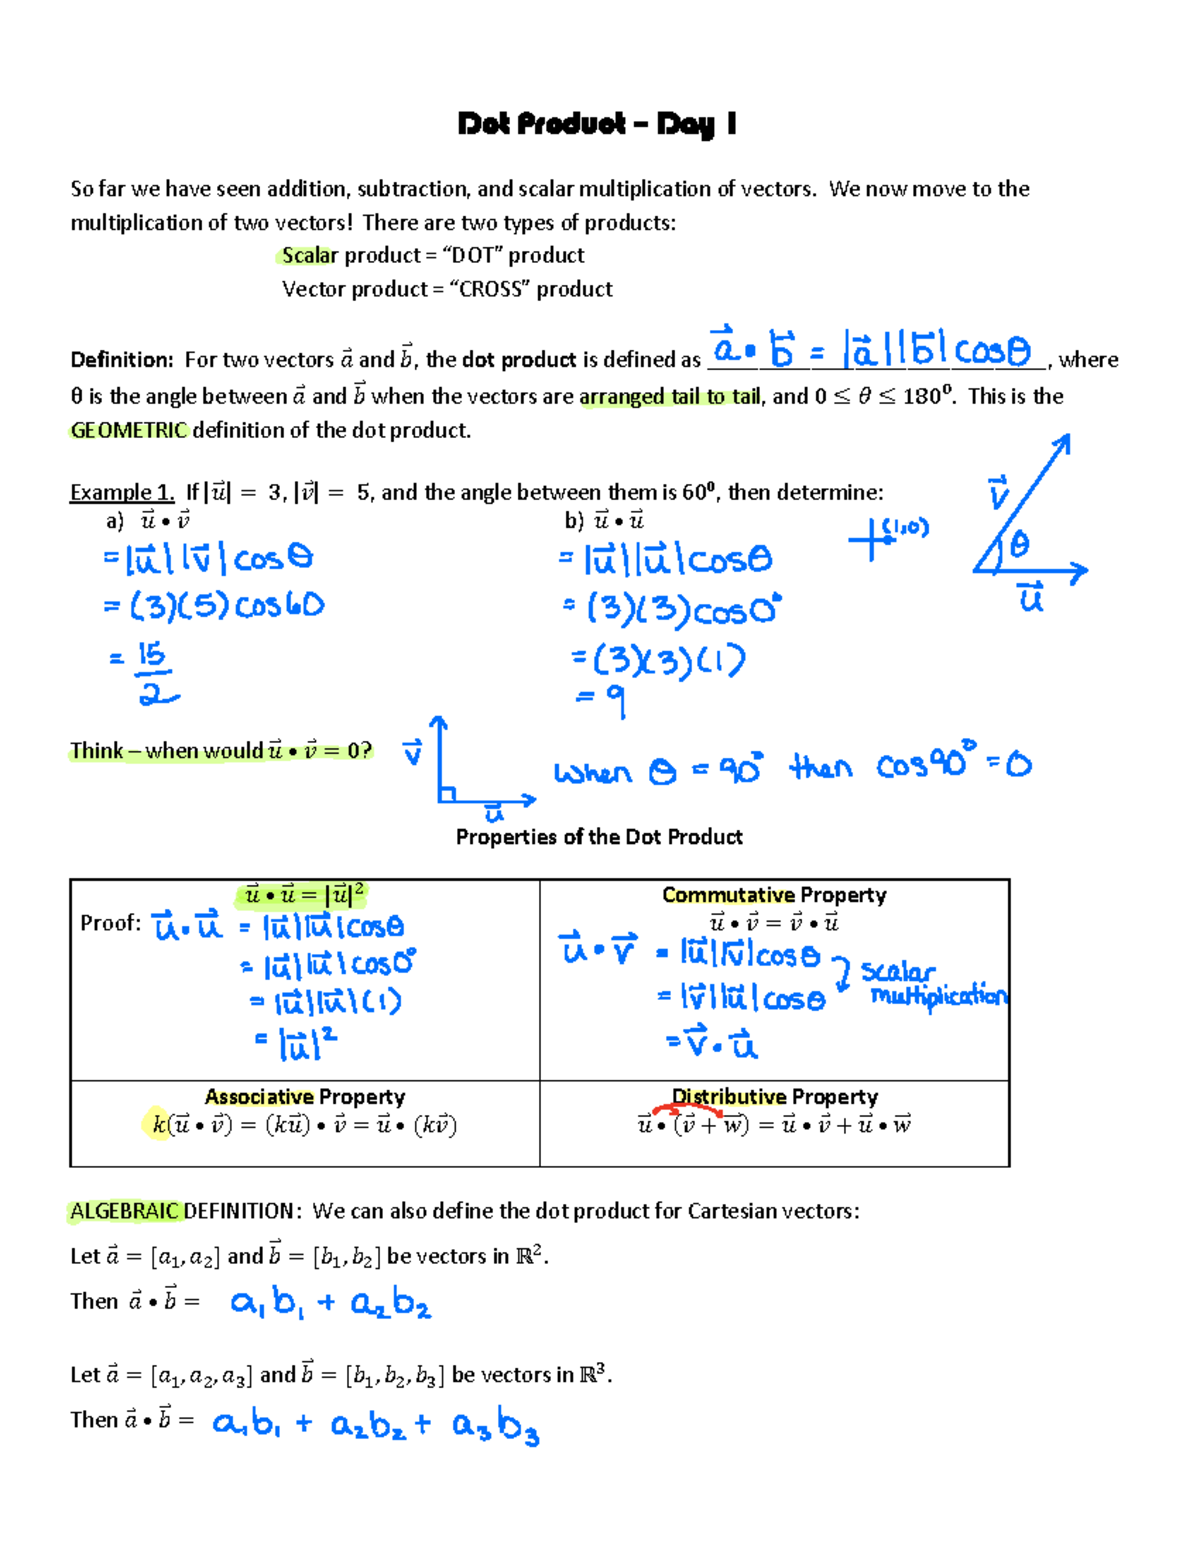 Dot Product – Day 1
So far we have seen addition, subtraction, and scalar multiplication of vectors. We now move to the
multiplication of two vectors! There are two types of products:
Scalar product = “DOT” product
Vector product = “CROSS” product
Definition: For two vectors a⃗ and b⃗, the dot product is defined as a⃗ • b⃗ = |a⃗||b⃗| cosθ, where
θ is the angle between a⃗ and b⃗ when the vectors are arranged tail to tail, and 0 ≤ θ ≤ 180⁰. This is the
GEOMETRIC definition of the dot product.
Example 1. If |u⃗| = 3, |v⃗| = 5, and the angle between them is 60⁰, then determine:
a) u⃗ • v⃗
= |u⃗||v⃗| cosθ
= (3)(5) cos60
= 15/2
b) u⃗ • u⃗
= |u⃗||u⃗| cosθ
= (3)(3) cos0°
= (3)(3)(1)
= 9
(1,0)
v⃗
θ
u⃗
Think – when would u⃗ • v⃗ = 0?
v⃗
u⃗
when θ = 90° then cos90° = 0
Properties of the Dot Product
u⃗ • u⃗ = |u⃗|²
Proof: u⃗ • u⃗ = |u⃗||u⃗| cosθ
= |u⃗||u⃗| cos0°
= |u⃗||u⃗|(1)
= |u⃗|²
Commutative Property
u⃗ • v⃗ = v⃗ • u⃗
u⃗ • v⃗ = |u⃗||v⃗| cosθ
= |v⃗||u⃗| cosθ
scalar
multiplication
= v⃗ • u⃗
Associative Property
k(u⃗ • v⃗) = (ku⃗) • v⃗ = u⃗ • (kv⃗)
Distributive Property
u⃗ • (v⃗ + w⃗) = u⃗ • v⃗ + u⃗ • w⃗
ALGEBRAIC DEFINITION: We can also define the dot product for Cartesian vectors:
Let a⃗ = [a₁, a₂] and b⃗ = [b₁, b₂] be vectors in ℝ².
Then a⃗ • b⃗ = a₁b₁ + a₂b₂
Let a⃗ = [a₁, a₂, a₃] and b⃗ = [b₁, b₂, b₃] be vectors in ℝ³.
Then a⃗ • b⃗ = a₁b₁ + a₂b₂ + a₃b₃